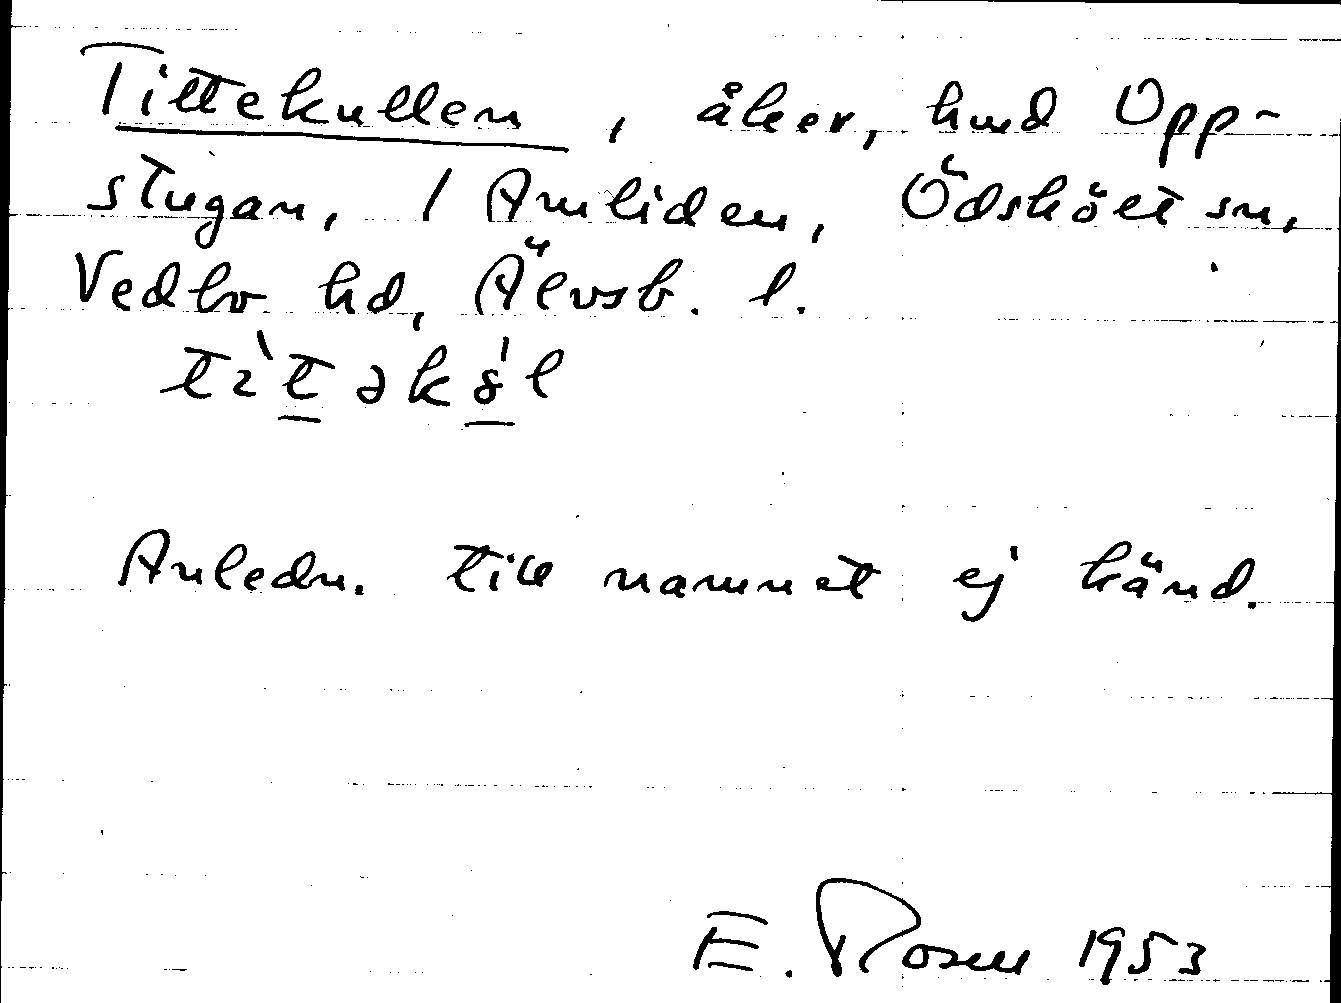 Tittekullen, åker, hmd Upp-
stugan, 1 Amliden, Ödskölt sn,
Vedbo hd, Älvsb. l.
Anledn. till namnet ej känd.
E. Rosell 1953